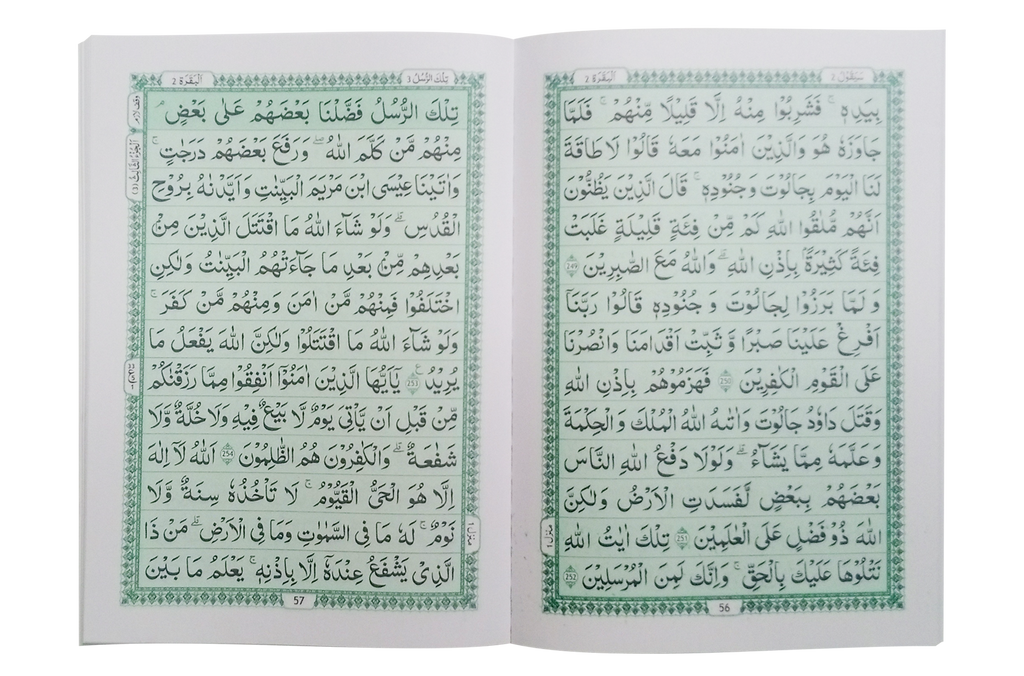 سَيَقُوْلُ 2
اَلْبَقَرَة 2
بِيَدِهٖ ۚ فَشَرِبُوْا مِنْهُ اِلَّا قَلِيْلًا مِّنْهُمْ ۚ فَلَمَّا
جَاوَزَهٗ هُوَ وَالَّذِيْنَ اٰمَنُوْا مَعَهٗ قَالُوْا لَا طَاقَةَ
لَنَا الْيَوْمَ بِجَالُوْتَ وَجُنُوْدِهٖ ۚ قَالَ الَّذِيْنَ يَظُنُّوْنَ
اَنَّهُمْ مُّلٰقُوا اللّٰهِ كَمْ مِّنْ فِئَةٍ قَلِيْلَةٍ غَلَبَتْ
فِئَةً كَثِيْرَةًۢ بِاِذْنِ اللّٰهِ ۗ وَاللّٰهُ مَعَ الصّٰبِرِيْنَ 249
وَ لَمَّا بَرَزُوْا لِجَالُوْتَ وَ جُنُوْدِهٖ قَالُوْا رَبَّنَا
اَفْرِغْ عَلَيْنَا صَبْرًا وَّ ثَبِّتْ اَقْدَامَنَا وَانْصُرْنَا
عَلَى الْقَوْمِ الْكٰفِرِيْنَ 250 فَهَزَمُوْهُمْ بِاِذْنِ اللّٰهِ
وَقَتَلَ دَاوٗدُ جَالُوْتَ وَاٰتٰىهُ اللّٰهُ الْمُلْكَ وَ الْحِكْمَةَ
وَ عَلَّمَهٗ مِمَّا يَشَآءُ ۗ وَلَوْلَا دَفْعُ اللّٰهِ النَّاسَ
بَعْضَهُمْ بِبَعْضٍ لَّفَسَدَتِ الْاَرْضُ وَلٰكِنَّ
اللّٰهَ ذُوْ فَضْلٍ عَلَى الْعٰلَمِيْنَ 251 تِلْكَ اٰيٰتُ اللّٰهِ
نَتْلُوْهَا عَلَيْكَ بِالْحَقِّ ۚ وَاِنَّكَ لَمِنَ الْمُرْسَلِيْنَ 252
منزل ١
56
تِلْكَ الرُّسُلُ 3
اَلْبَقَرَة 2
تِلْكَ الرُّسُلُ فَضَّلْنَا بَعْضَهُمْ عَلٰى بَعْضٍ ۘ
مِنْهُمْ مَّنْ كَلَّمَ اللّٰهُ ۖ وَرَفَعَ بَعْضَهُمْ دَرَجٰتٍ ۚ
وَاٰتَيْنَا عِيْسَى ابْنَ مَرْيَمَ الْبَيِّنٰتِ وَاَيَّدْنٰهُ بِرُوْحِ
الْقُدُسِ ۗ وَلَوْ شَآءَ اللّٰهُ مَا اقْتَتَلَ الَّذِيْنَ مِنْۢ
بَعْدِهِمْ مِّنْۢ بَعْدِ مَا جَآءَتْهُمُ الْبَيِّنٰتُ وَلٰكِنِ
اخْتَلَفُوْا فَمِنْهُمْ مَّنْ اٰمَنَ وَمِنْهُمْ مَّنْ كَفَرَ ۚ
وَلَوْ شَآءَ اللّٰهُ مَا اقْتَتَلُوْا وَلٰكِنَّ اللّٰهَ يَفْعَلُ مَا
يُرِيْدُ 253 يٰٓاَيُّهَا الَّذِيْنَ اٰمَنُوْٓا اَنْفِقُوْا مِمَّا رَزَقْنٰكُمْ
مِّنْ قَبْلِ اَنْ يَّاْتِيَ يَوْمٌ لَّا بَيْعٌ فِيْهِ وَلَا خُلَّةٌ وَّلَا
شَفَاعَةٌ ۗ وَالْكٰفِرُوْنَ هُمُ الظّٰلِمُوْنَ 254 اَللّٰهُ لَآ اِلٰهَ
اِلَّا هُوَ الْحَيُّ الْقَيُّوْمُ ۚ لَا تَاْخُذُهٗ سِنَةٌ وَّلَا
نَوْمٌ ۚ لَهٗ مَا فِى السَّمٰوٰتِ وَمَا فِى الْاَرْضِ ۗ مَنْ ذَا
الَّذِيْ يَشْفَعُ عِنْدَهٗٓ اِلَّا بِاِذْنِهٖ ۚ يَعْلَمُ مَا بَيْنَ
وقف لازم
اَلْجُزْءُ الثَّالِثُ (3)
منزل ١
57